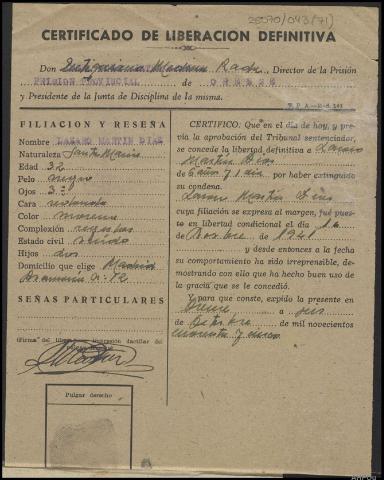 25070/043(71)
CERTIFICADO DE LIBERACION DEFINITIVA
Don Rada, Director de la Prisión
PRISION PROVINCIAL de ORENSE
y Presidente de la Junta de Disciplina de la misma.
FILIACION Y RESEÑA
Nombre LAZARO MARTIN DIAZ
Naturaleza
Edad 32
Pelo negro
Ojos
Cara redonda
Color moreno
Complexión
Estado civil
Hijos dos
Domicilio que elige Madrid
SEÑAS PARTICULARES
(Firma del liberado impresión dactilar del
Pulgar derecho
CERTIFICO: Que en el día de hoy, y previa
la aprobación del Tribunal sentenciador,
se concede la libertad definitiva a Lazaro
Martin Diaz
6 años y 1 dia por haber extinguido
su condena.
Lazaro Martin Diaz
cuya filiación se expresa al margen, fué puesto
en libertad condicional el día
de 1941
y desde entonces a la fecha
su comportamiento ha sido irreprensible, de-
mostrando con ello que ha hecho buen uso de
la gracia que se le concedió.
Y para que conste, expido la presente en
Orense a seis
de Octubre de mil novecientos
cuarenta y cinco